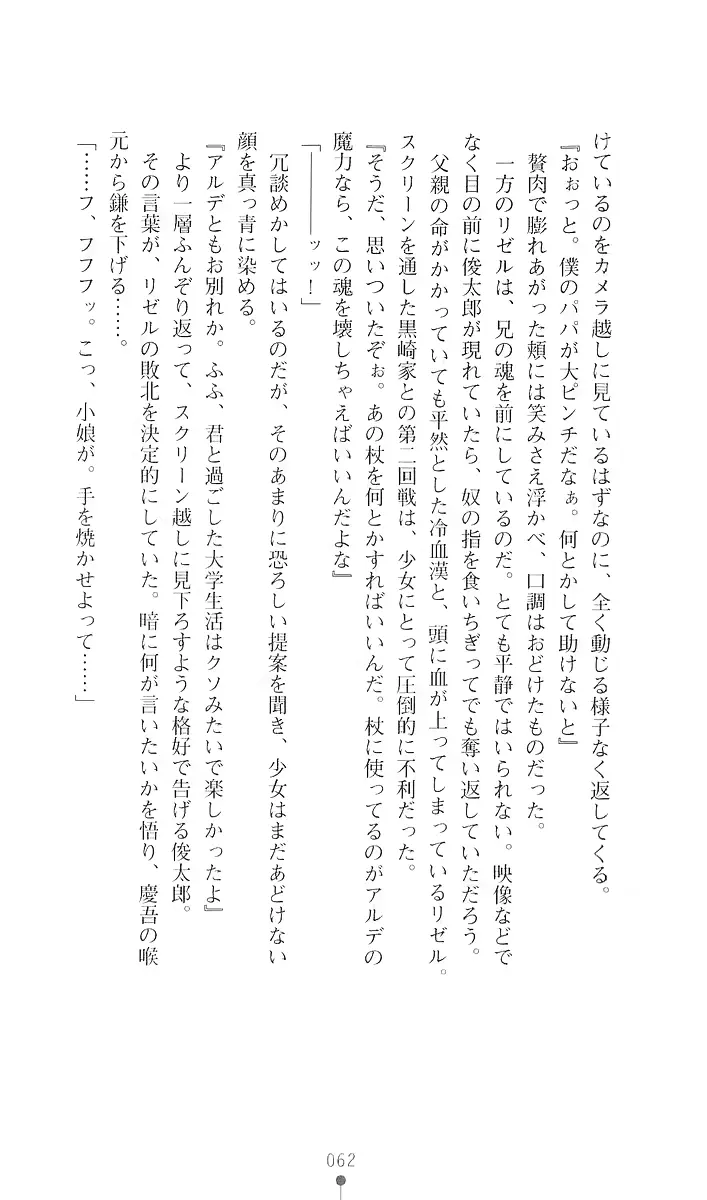 けているのをカメラ越しに見ているはずなのに、全く動じる様子なく返してくる。
『おぉっと。僕のパパが大ピンチだなぁ。何とかして助けないと』
贅肉で膨れあがった頬には笑みさえ浮かべ、口調はおどけたものだった。
一方のリゼルは、兄の魂を前にしているのだ。とても平静ではいられない。映像などで
なく目の前に俊太郎が現れていたら、奴の指を食いちぎってでも奪い返していただろう。
父親の命がかかっていても平然とした冷血漢と、頭に血が上ってしまっているリゼル。
スクリーンを通した黒崎家との第二回戦は、少女にとって圧倒的に不利だった。
『そうだ、思いついたぞぉ。あの杖を何とかすればいいんだ。杖に使ってるのがアルデの
魔力なら、この魂を壊しちゃえばいいんだよな』
「――――ッッ！」
冗談めかしてはいるのだが、そのあまりに恐ろしい提案を聞き、少女はまだあどけない
顔を真っ青に染める。
『アルデともお別れか。ふふ、君と過ごした大学生活はクソみたいで楽しかったよ』
より一層ふんぞり返って、スクリーン越しに見下ろすような格好で告げる俊太郎。
その言葉が、リゼルの敗北を決定的にしていた。暗に何が言いたいかを悟り、慶吾の喉
元から鎌を下げる……。
「……フ、フフフッ。こっ、小娘が。手を焼かせよって……」
062